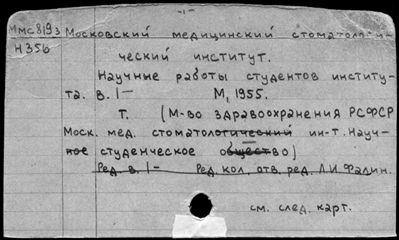 -1-
Ммс819з Московский медицинский стоматологи-
Н356
ческий институт.
Научные работы студентов институ-
та. В. 1- М, 1955.
Т. (М-во здравоохранения РСФСР
Моск. мед. стоматологический ин-т. Науч-
ное студенческое общество)
Ред. в. 1- Ред. кол., отв. ред. Л.И. Фалин.
см. след. карт.